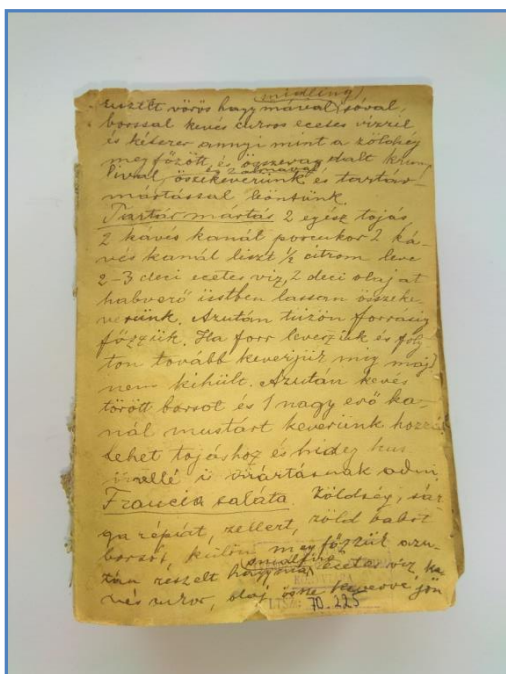 (snidling)
reszelt vörös hagymával, sóval,
borssal kevés cukros ecetes vizzel
és kétszer annyi mint a zöldség
megfőzött, és összevagdalt krum
plival, összekeverünk és tartár
mártással leöntünk.
Tartár martás 2 egész tojás,
2 kávés kanál porcukor 2 ká-
vés kanál liszt ½ citrom leve
2-3 deci ecetes viz, 2 deci olajat
habverő üstben lassan összeke-
verünk. Azután tűzön forrásig
főzzük. Ha forr leveszük és foly
ton tovább keverjük mig majd
nem kihült. Azután kevés
törött borsot és 1 nagy evő ka-
nál mustárt keverünk hozzá
lehet tojáshoz és hideg hus
mellé is mártásnak adni
Francia saláta. Zöldség, sár
ga répát, zellert, zöld babot
borsót, külön megfőzzük azu-
tán reszelt hagyma, ecetes viz ka
vés cukor, olaj össze keverve jön
LTSZ: 70.225